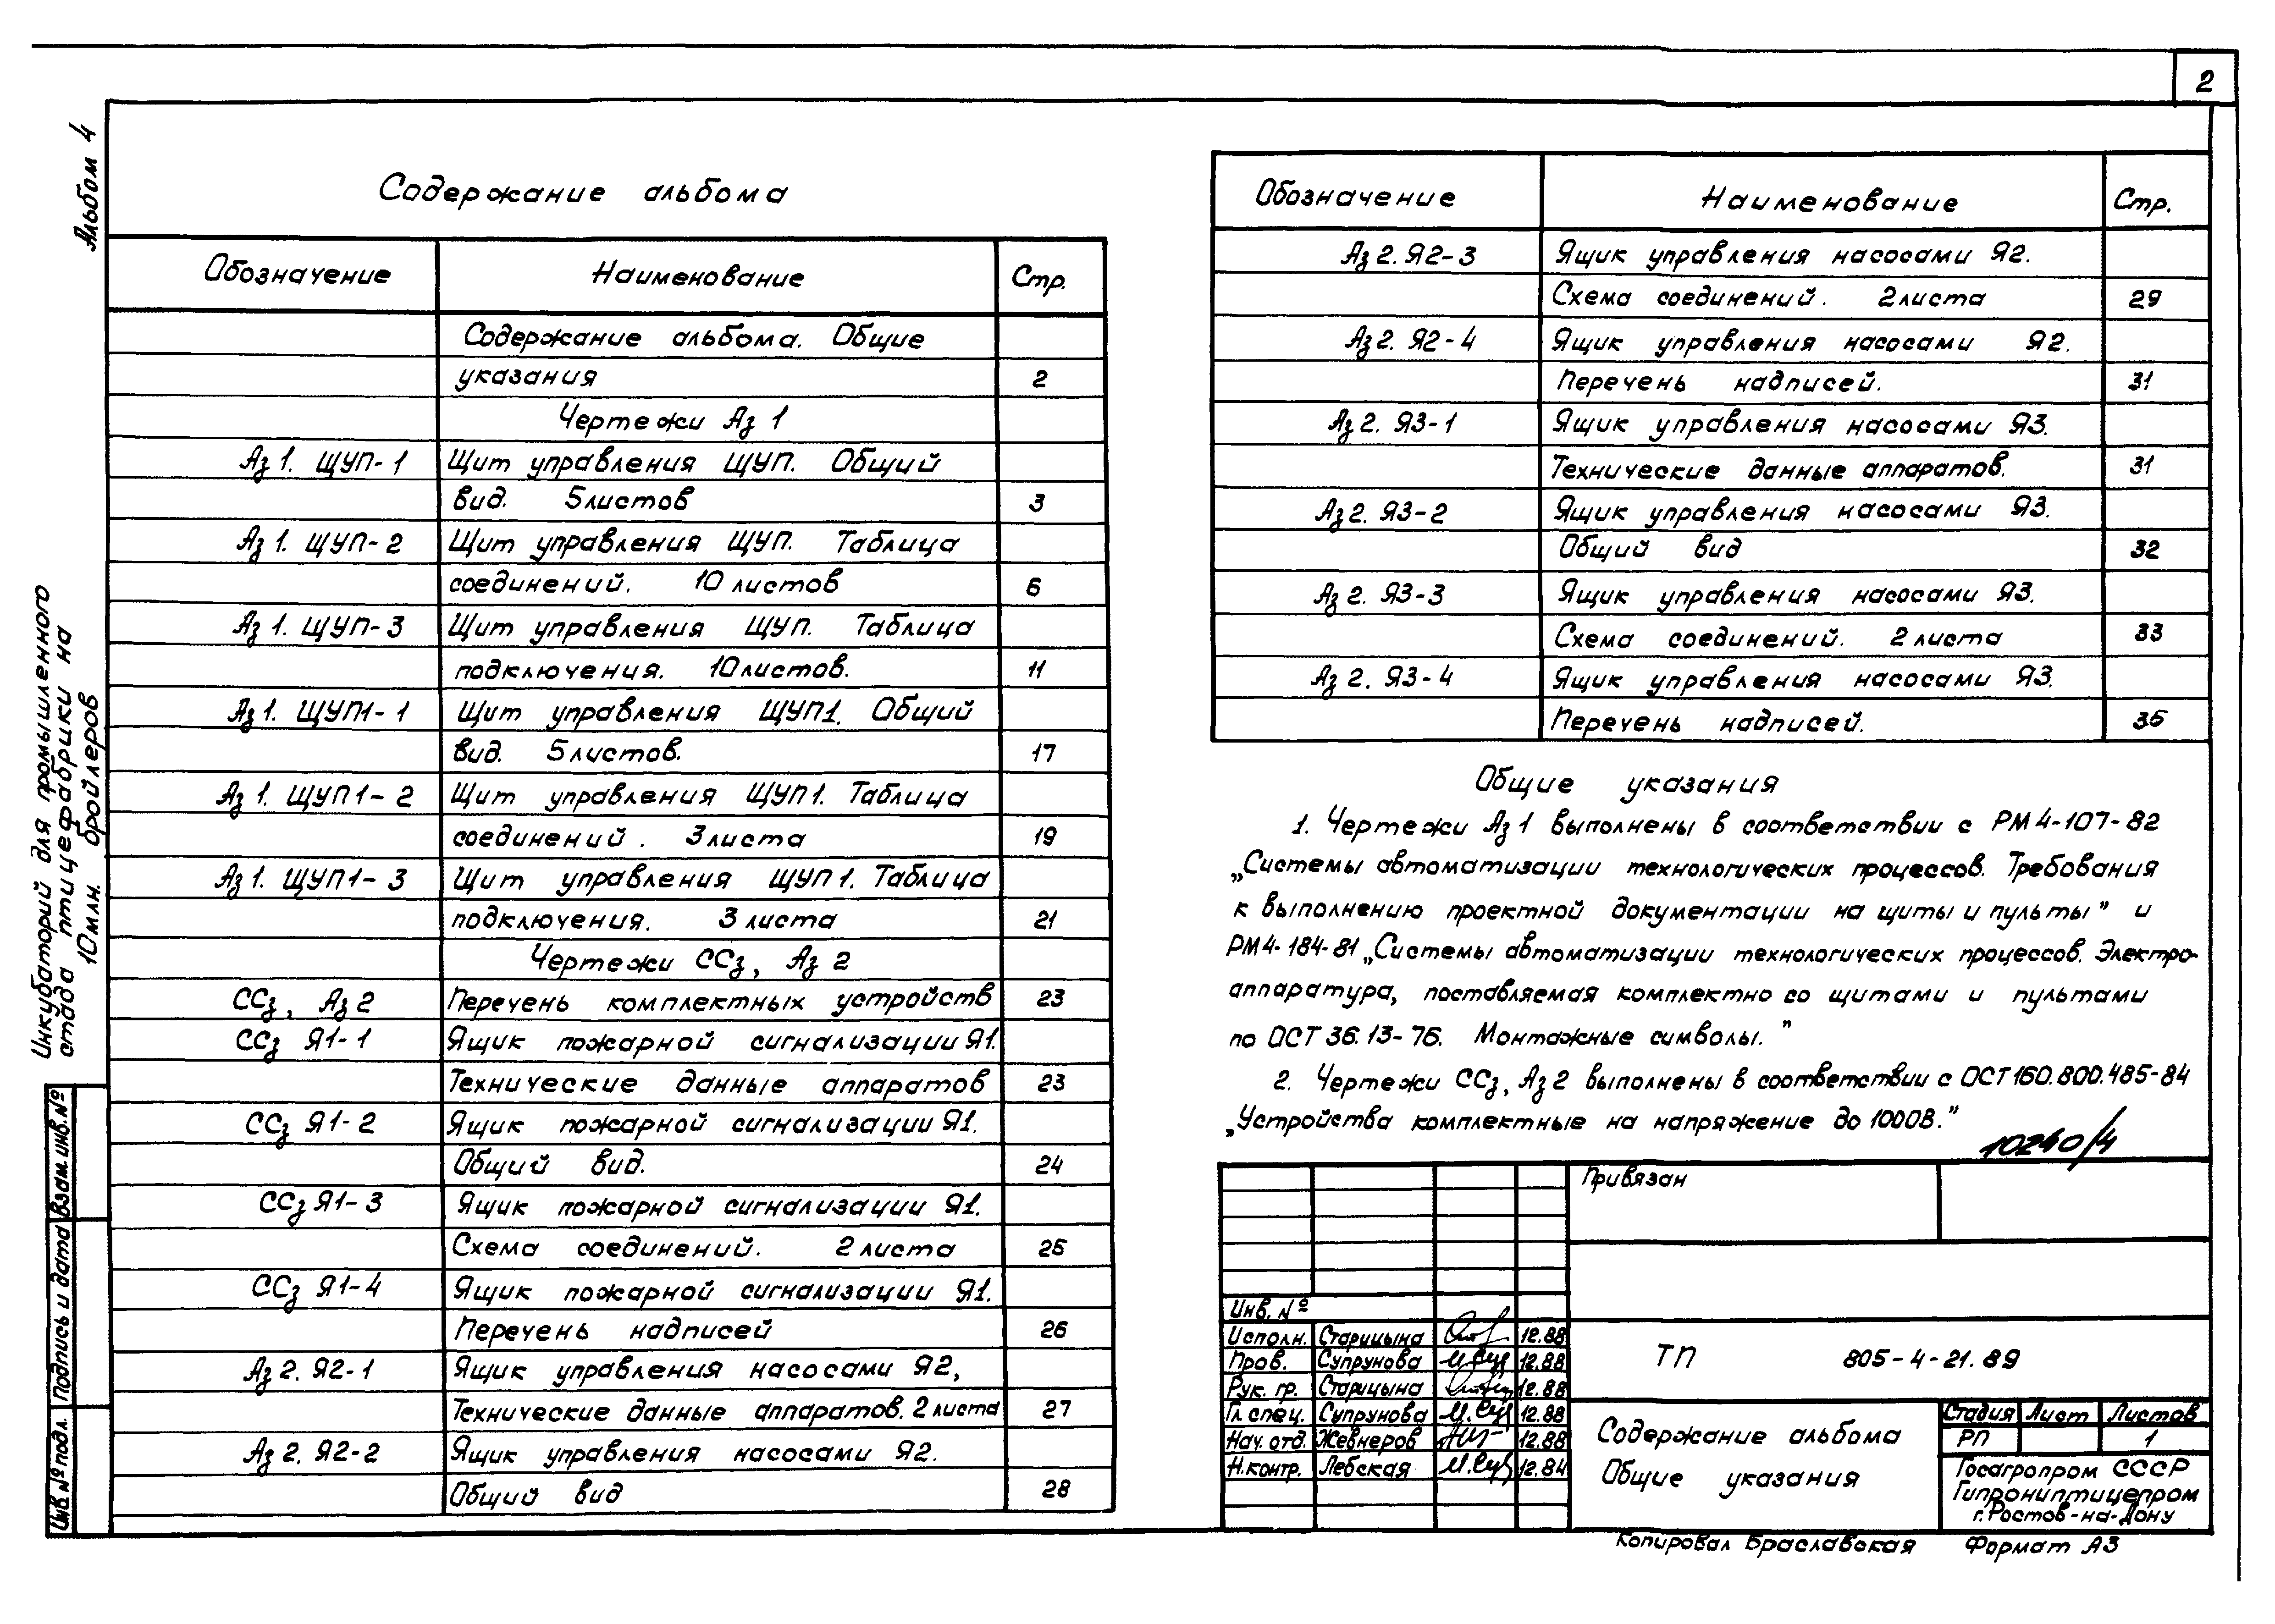 2
Альбом 4
Инкубаторий для промышленного
стада птицефабрики на
10 млн. бройлеров
Взам. инв. №
Подпись и дата
Инв. № подл.
Содержание альбома
Обозначение Наименование Стр.
Содержание альбома. Общие
указания 2
Чертежи Аз 1
Аз 1. ЩУП-1 Щит управления ЩУП. Общий
вид. 5 листов 3
Аз 1. ЩУП-2 Щит управления ЩУП. Таблица
соединений. 10 листов 6
Аз 1. ЩУП-3 Щит управления ЩУП. Таблица
подключения. 10 листов. 11
Аз 1. ЩУП1-1 Щит управления ЩУП1. Общий
вид. 5 листов. 17
Аз 1. ЩУП1-2 Щит управления ЩУП1. Таблица
соединений. 3 листа 19
Аз 1. ЩУП1-3 Щит управления ЩУП1. Таблица
подключения. 3 листа 21
Чертежи ССз, Аз 2
ССз, Аз 2 Перечень комплектных устройств 23
ССз Я1-1 Ящик пожарной сигнализации Я1.
Технические данные аппаратов 23
ССз Я1-2 Ящик пожарной сигнализации Я1.
Общий вид. 24
ССз Я1-3 Ящик пожарной сигнализации Я1.
Схема соединений. 2 листа 25
ССз Я1-4 Ящик пожарной сигнализации Я1.
Перечень надписей 26
Аз 2. Я2-1 Ящик управления насосами Я2,
Технические данные аппаратов. 2 листа 27
Аз 2. Я2-2 Ящик управления насосами Я2.
Общий вид 28
Обозначение Наименование Стр.
Аз 2. Я2-3 Ящик управления насосами Я2.
Схема соединений. 2 листа 29
Аз 2. Я2-4 Ящик управления насосами Я2.
Перечень надписей. 31
Аз 2. Я3-1 Ящик управления насосами Я3.
Технические данные аппаратов. 31
Аз 2. Я3-2 Ящик управления насосами Я3.
Общий вид 32
Аз 2. Я3-3 Ящик управления насосами Я3.
Схема соединений. 2 листа 33
Аз 2. Я3-4 Ящик управления насосами Я3.
Перечень надписей. 35
Общие указания
1. Чертежи Аз 1 выполнены в соответствии с РМ4-107-82
„Системы автоматизации технологических процессов. Требования
к выполнению проектной документации на щиты и пульты" и
РМ4-184-81 „Системы автоматизации технологических процессов. Электро-
аппаратура, поставляемая комплектно со щитами и пультами
по ОСТ 36.13-76. Монтажные символы."
2. Чертежи ССз, Аз 2 выполнены в соответствии с ОСТ 160.800.485-84
„Устройства комплектные на напряжение до 1000В."
10240/4
Привязан
Инв. №
Исполн. Старицына 12.88
Пров. Супрунова 12.88
Рук. гр. Старицына 12.88
Гл. спец. Супрунова 12.88
Нач. отд. Жевнеров 12.88
Н. контр. Лебская 12.84
ТП 805-4-21.89
Содержание альбома
Общие указания
Стадия Лист Листов
РП 1
Госагропром СССР
Гипрониптицепром
г. Ростов-на-Дону
Копировал Браславская Формат А3